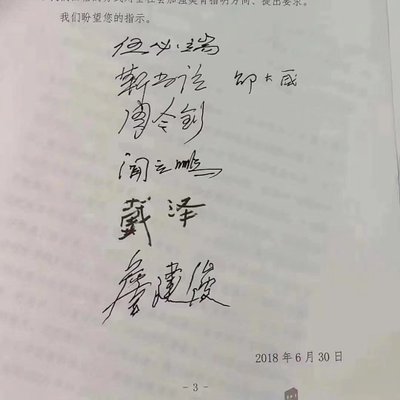 对全社会加强美育指明方向、提出要求。
我们盼望您的指示。
伍必端
靳尚谊 邵大箴
周令钊
闻立鹏
戴泽
詹建俊
2018年6月30日
- 3 -